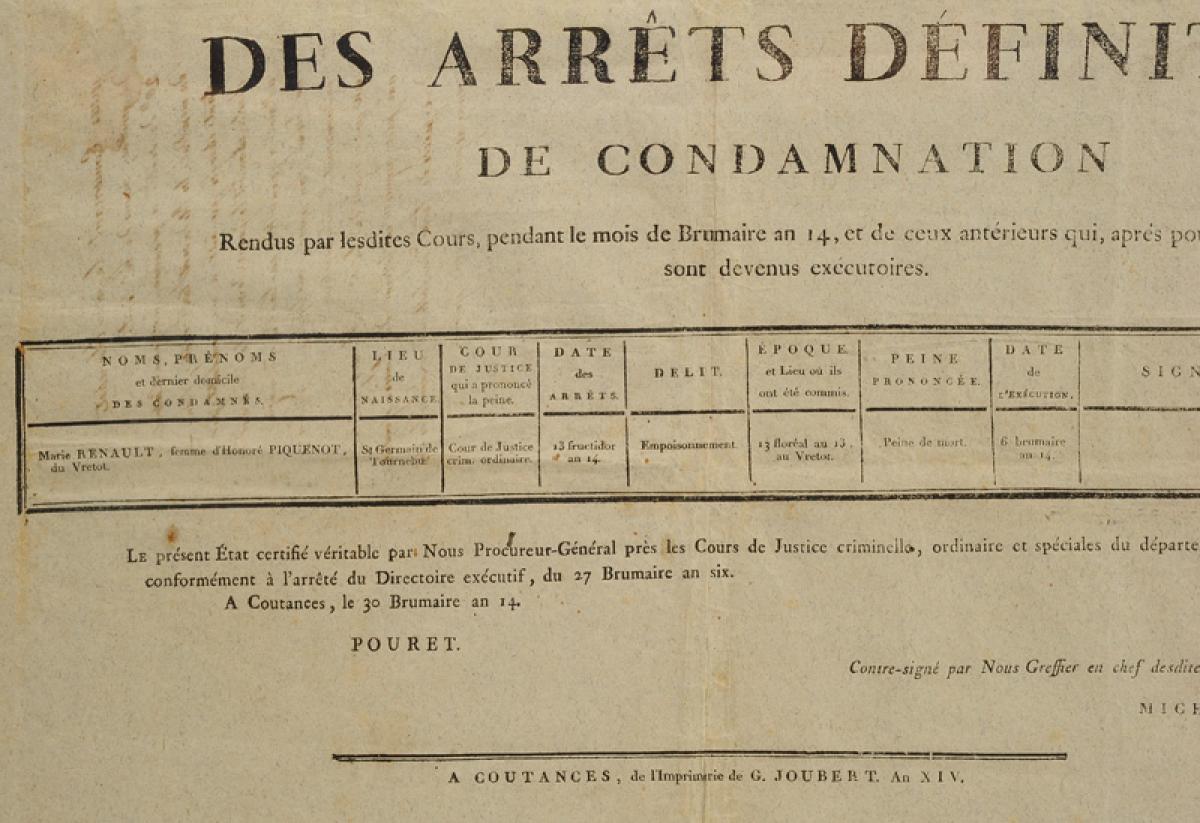 DES ARRÊTS DÉFINIT
DE CONDAMNATION
Rendus par lesdites Cours, pendant le mois de Brumaire an 14, et de ceux antérieurs qui, aprés pou
sont devenus exécutoires.
NOMS, PRÉNOMS
et dernier domicile
DES CONDAMNÉS.
LIEU
de
NAISSANCE.
COUR
DE JUSTICE
qui a prononcé
la peine.
DATE
des
ARRÊTS.
DELIT.
ÉPOQUE
et Lieu où ils
ont été commis.
PEINE
PRONONCÉE.
DATE
de
L'EXÉCUTION.
SIGN
Marie RENAULT, femme d'Honoré PIQUENOT,
du Vretot.
St Germain de
Tournebu
Cour de Justice
crim. ordinaire.
13 fructidor
an 14.
Empoisonnement.
13 floréal au 13.
au Vretot.
Peine de mort.
6 brumaire
an 14.
LE présent État certifié véritable par Nous Procureur-Général près les Cours de Justice criminelle, ordinaire et spéciales du départe
conformément à l'arrêté du Directoire exécutif, du 27 Brumaire an six.
A Coutances, le 30 Brumaire an 14.
POURET.
Contre-signé par Nous Greffier en chef desdite
MICH
A COUTANCES, de l'Imprimerie de G. JOUBERT. An XIV.